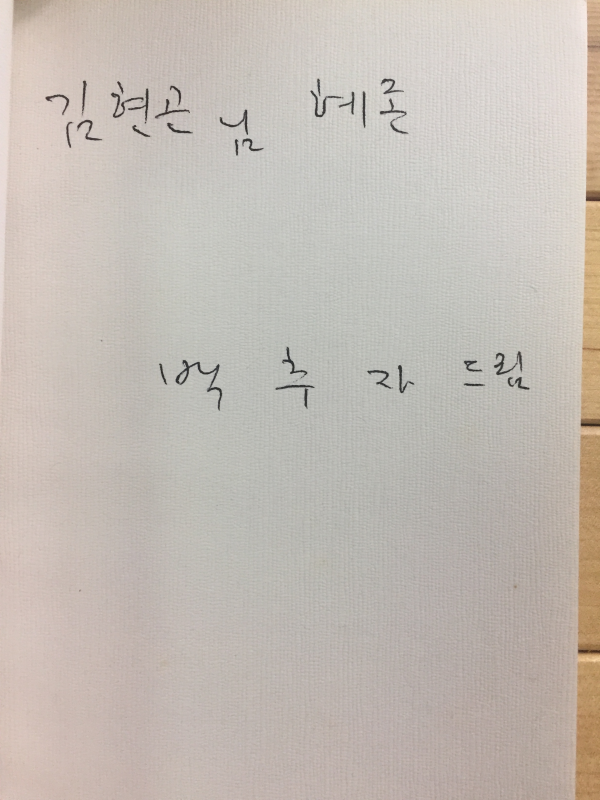 김현곤 님 혜존
백 추 자 드림